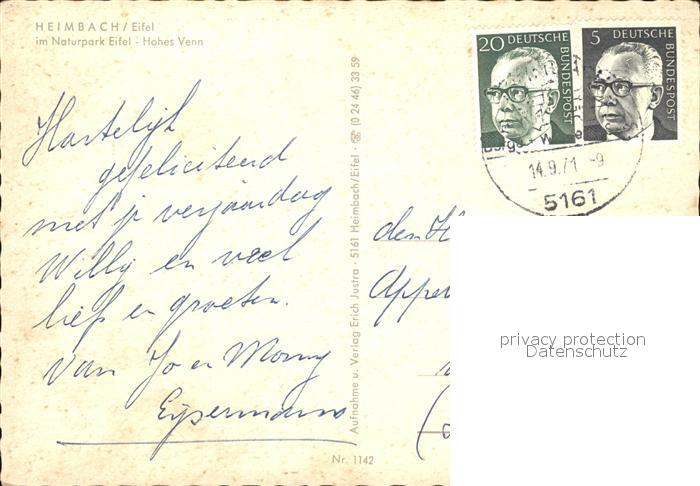 HEIMBACH/Eifel
im Naturpark Eifel - Hohes Venn
Hartelijk
gefeliciteerd
met je verjaardag
Willy en veel
liefs en groeten.
Van Jo en
Eijsermans
Aufnahme u. Verlag Erich Justra · 5161 Heimbach/Eifel · ☎ (0 24 46) 33 59
Nr. 1142
20 DEUTSCHE BUNDESPOST
5 DEUTSCHE BUNDESPOST
14.9.71 -9
5161
den H
Apper
privacy protection
Datenschutz